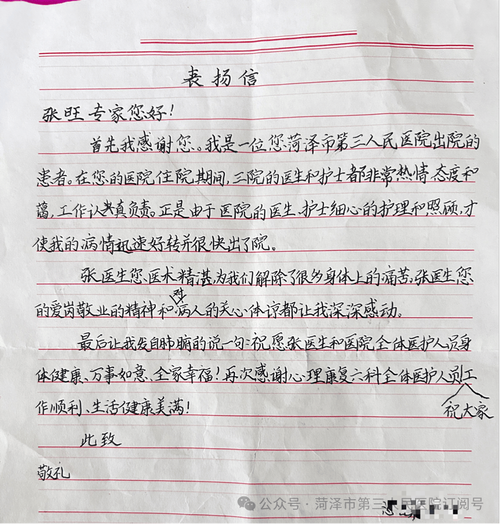 表扬信
张旺专家您好!
首先我感谢您。我是一位您菏泽市第三人民医院出院的
患者。在您的医院住院期间,三院的医生和护士都非常热情、态度和
蔼,工作认真负责。正是由于医院的医生、护士细心的护理和照顾,才
使我的病情迅速好转并很快出了院。
张医生您医术精湛为我们解除了很多身体上的痛苦,张医生您
的爱岗敬业的精神和对病人的关心体谅都让我深深感动。
最后让我发自肺腑的说一句:祝愿张医生和医院全体医护人员身
体健康、万事如意、全家幸福!再次感谢心理康复六科全体医护人员工
祝大家
作顺利、生活健康美满!
此致
敬礼
公众号·菏泽市第三人民医院订阅号